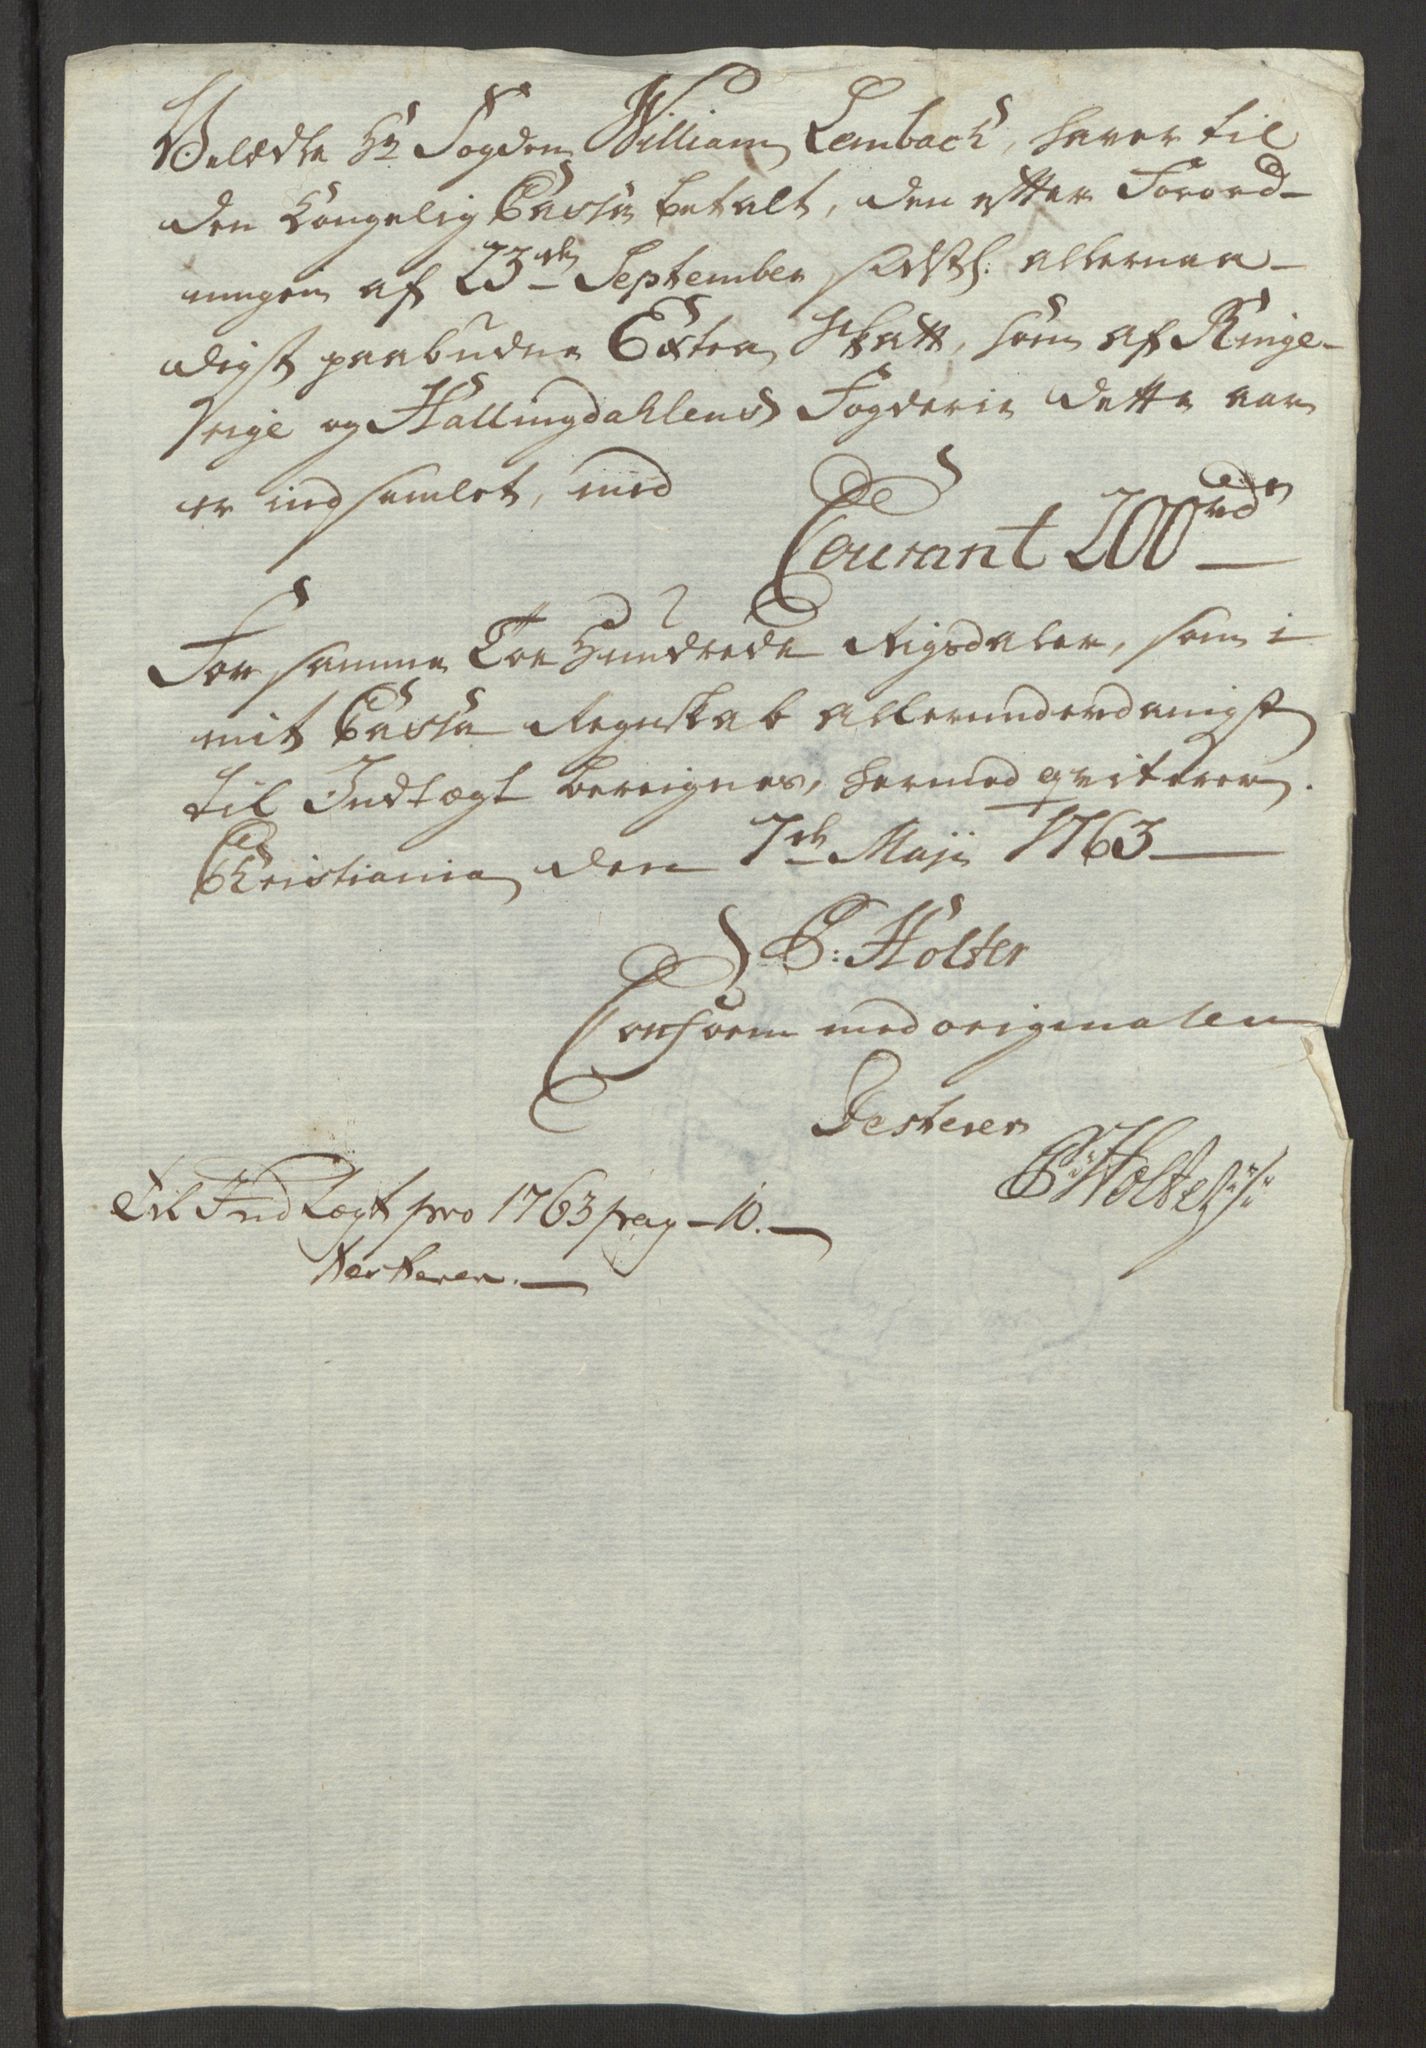 Velædle Hr Fogden William Lembach, haver til
den Kongelig Cassa betalt, den efter Forord-
ningen af 23de September sidstl: allernaa-
digst paabudne Extra Skatt, som af Ringe-
rige og Hallingdahlens Fogderie dette aar
er indsamlet, med
Courant 200 rdr
For samme Toe Hundrede Rigsdaler, som i
mit Cassa Regnskab allerunderdanigst
til Indtægt bereignes, hermed qviterer.
Christiania den 7de Maji 1763
C: Holter
Conform med originalen
Testerer
C: Holter
Til Indtægt pro 1763 pag - 10.
testerer.